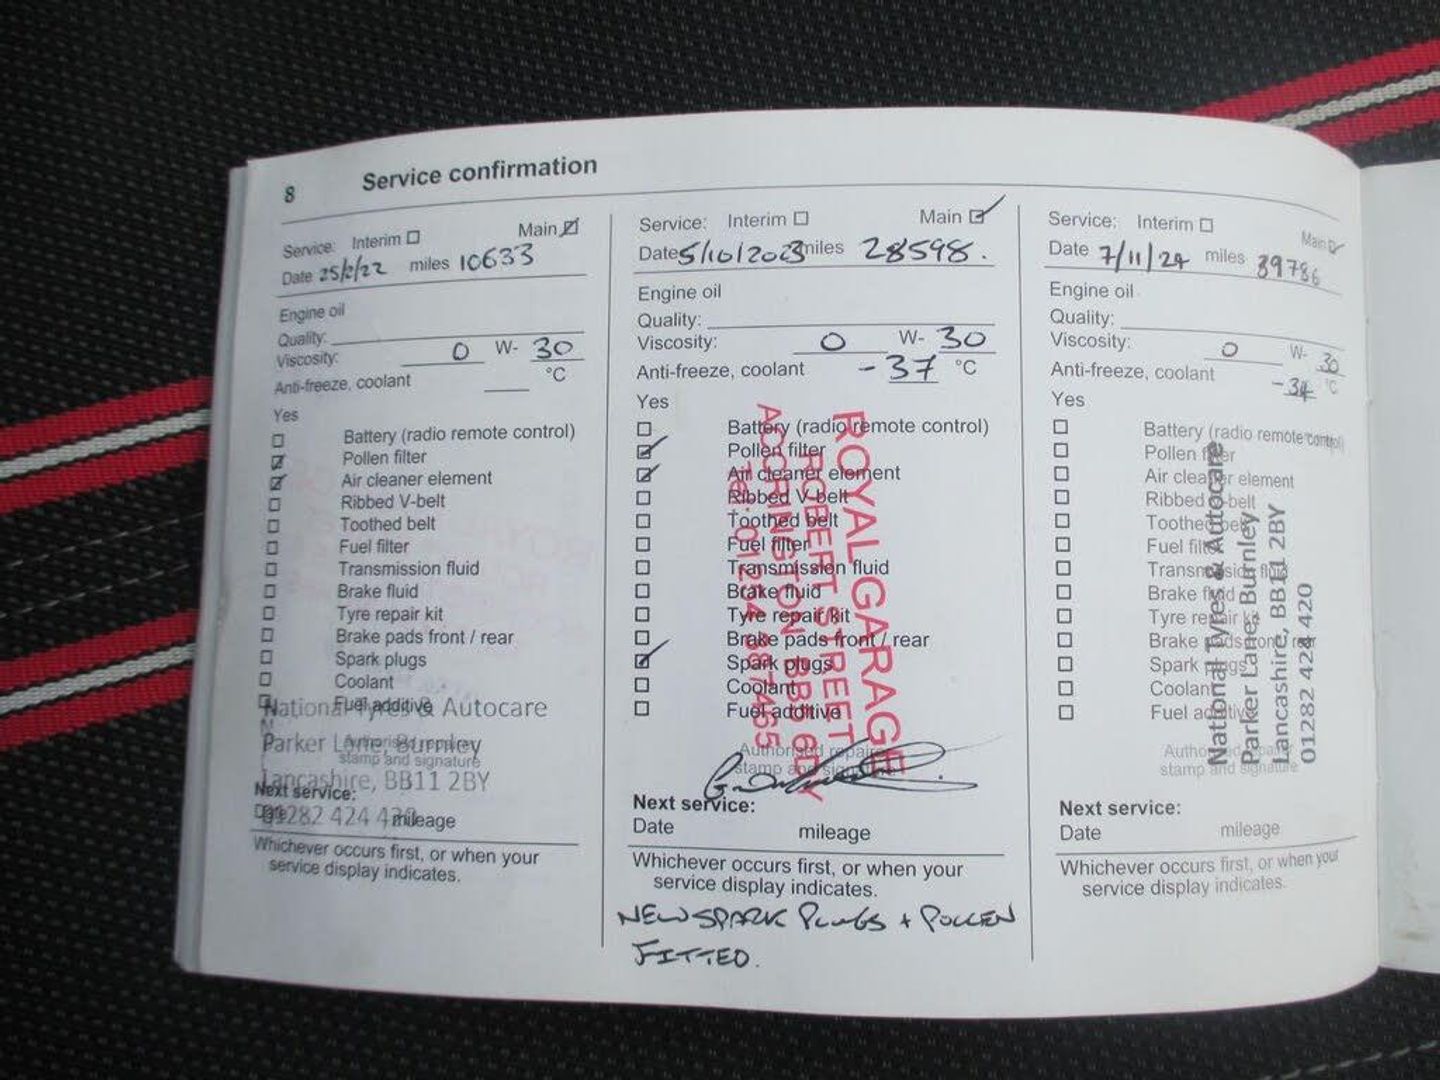 8 Service confirmation
Service: Interim Main
Date 25/2/22 miles 10633
Engine oil
Quality:
Viscosity: 0 W- 30
Anti-freeze, coolant °C
Yes
Battery (radio remote control)
Pollen filter
Air cleaner element
Ribbed V-belt
Toothed belt
Fuel filter
Transmission fluid
Brake fluid
Tyre repair kit
Brake pads front / rear
Spark plugs
Coolant
Fuel additive
National Tyres & Autocare
Parker Lane, Burnley
Authorised repairer
stamp and signature
Lancashire, BB11 2BY
Next service:
01282 424 420
Date mileage
Whichever occurs first, or when your
service display indicates.
Service: Interim Main
Date 5/10/2023 miles 28598.
Engine oil
Quality:
Viscosity: 0 W- 30
Anti-freeze, coolant -37 °C
Yes
Battery (radio remote control)
Pollen filter
Air cleaner element
Ribbed V-belt
Toothed belt
Fuel filter
Transmission fluid
Brake fluid
Tyre repair kit
Brake pads front / rear
Spark plugs
Coolant
Fuel additive
ROYAL GARAGE
ROBERT STREET
ACCRINGTON BB5 6DY
Tel: 01254 387465
Authorised repairer
stamp and signature
Next service:
Date mileage
Whichever occurs first, or when your
service display indicates.
NEW SPARK PLUGS + POLLEN
FITTED.
Service: Interim Main
Date 7/11/24 miles 39786
Engine oil
Quality:
Viscosity: 0 W- 30
Anti-freeze, coolant -34 °C
Yes
Battery (radio remote control)
Pollen filter
Air cleaner element
Ribbed V-belt
Toothed belt
Fuel filter
Transmission fluid
Brake fluid
Tyre repair kit
Brake pads front / rear
Spark plugs
Coolant
Fuel additive
National Tyres & Autocare
Parker Lane, Burnley
Lancashire, BB11 2BY
01282 424 420
Authorised repairer
stamp and signature
Next service:
Date mileage
Whichever occurs first, or when your
service display indicates.